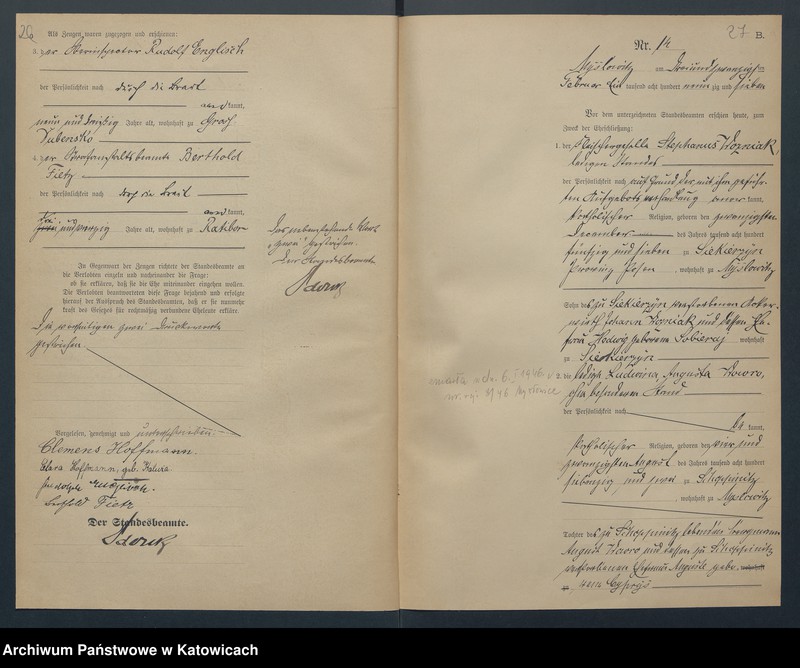 26a
Als Zeugen waren zugezogen und erschienen:
3. der Oberinspector Rudolf Englisch
der Persönlichkeit nach durch die Braut
anerkannt,
neun und dreißig Jahre alt, wohnhaft zu Groß
Dubensko
4. der Berthold
Fietz
der Persönlichkeit nach durch die Braut
kannt,
Jahre alt, wohnhaft zu Ratibor
In Gegenwart der Zeugen richtete der Standesbeamte an
die Verlobten einzeln und nacheinander die Frage:
ob sie erklären, daß sie die Ehe miteinander eingehen wollen.
Die Verlobten beantworteten diese Frage bejahend und erfolgte
hierauf der Ausspruch des Standesbeamten, daß er sie nunmehr
kraft des Gesetzes für rechtmäßig verbundene Eheleute erkläre.
zwei Druckworte
gestrichen.
Vorgelesen, genehmigt und unterschrieben.
Clemens Hoffmann.
Clara Hoffmann, geb.
Rudolph Englisch.
Berthold Fietz
Der Standesbeamte.
zwei gestrichen.
Der Standesbeamte
27
B.
Nr. 14
Myslowitz am dreiundzwanzigsten
Februar tausend acht hundert neunzig und sieben
Vor dem unterzeichneten Standesbeamten erschien heute, zum
Zweck der Eheschließung:
1. der Fleischergeselle Stephanus Wozniak,
ledigen Standes
der Persönlichkeit nach auf Grund der mit ihm geführ-
ten Aufgebotsverhandlung kannt,
katholischer Religion, geboren den zwanzigsten
December des Jahres tausend acht hundert
und sieben zu Siekierzyn
Provinz Posen, wohnhaft zu Myslowitz
Sohn des zu Siekierzyn verstorbenen Acker-
wirth Johann Wozniak und dessen Ehe-
frau Hedwig geborene Sobieraj wohnhaft
zu Siekierzyn
zmarła dn. 6. I 1946 r.
nr. rej. 8/46 Mysłowice
2. die Ludwina, Augusta Woworo,
ohne besonderen Stand
der Persönlichkeit nach
be kannt,
katholischer Religion, geboren den vier und
zwanzigsten August des Jahres tausend acht hundert
siebenzig und zu Schoppinitz
, wohnhaft zu Myslowitz
Tochter des zu Schoppinitz lebenden Bergmann
August Woworo und dessen zu Schoppinitz
verstorbenen Ehefrau gebo- wohnhaft
zu renen
Archiwum Państwowe w Katowicach